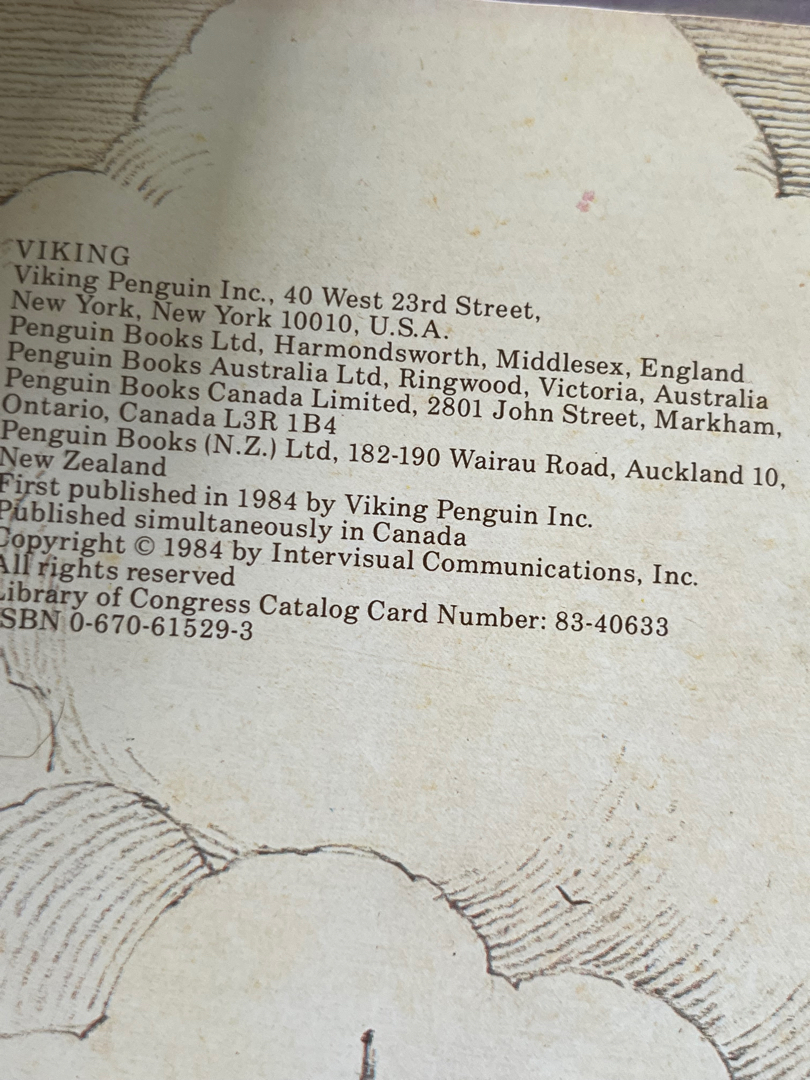 VIKING
Viking Penguin Inc., 40 West 23rd Street,
New York, New York 10010, U.S.A.
Penguin Books Ltd, Harmondsworth, Middlesex, England
Penguin Books Australia Ltd, Ringwood, Victoria, Australia
Penguin Books Canada Limited, 2801 John Street, Markham,
Ontario, Canada L3R 1B4
Penguin Books (N.Z.) Ltd, 182-190 Wairau Road, Auckland 10,
New Zealand
First published in 1984 by Viking Penguin Inc.
Published simultaneously in Canada
Copyright © 1984 by Intervisual Communications, Inc.
All rights reserved
Library of Congress Catalog Card Number: 83-40633
ISBN 0-670-61529-3